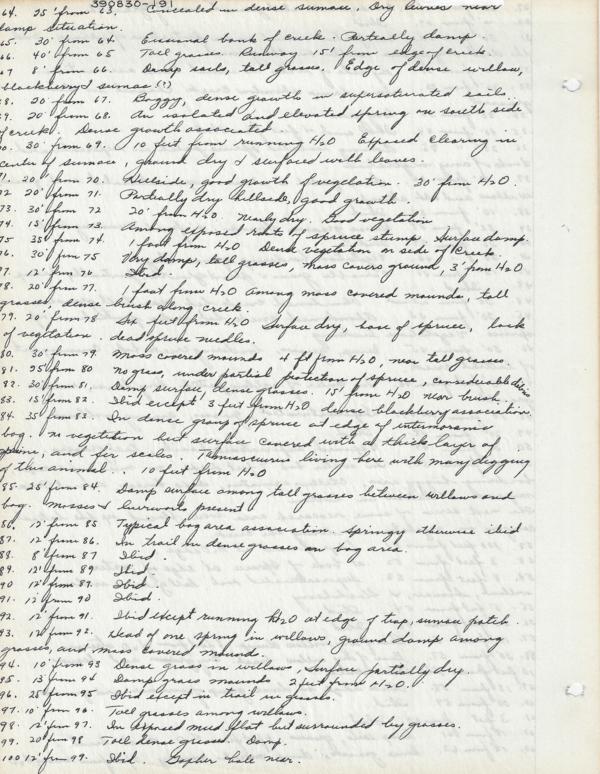 390830-191
64. 25' from 63. Concealed in dense sumac, Dry leaves near
damp situation.
65. 30' from 64. Erosional bank of creek. Partially damp.
66. 40' from 65 Tall grasses. Runway 15' from edge of creek
67 8' from 66. Damp soils, tall grasses. Edge of dense willow,
blackberry & sumac (?)
68. 20' from 67. Boggy, dense growth in supersaturated soils.
69. 20' from 68. An isolated and elevated spring on south side
of creek. Dense growth associated.
70. 30' from 69. 10 feet from running H2O Exposed clearing in
center of sumac, ground dry & surfaced with leaves.
71. 20' from 70. Hillside, good growth of vegetation. 30' from H2O.
72 20' from 71. Partially dry hillside, good growth.
73. 30' from 72 20' from H2O. Nearly dry. Good vegetation
74. 15' from 73 Among exposed roots of spruce stump Surface damp.
75 35' from 74. 1 foot from H2O Dense vegetation on side of creek.
76. 30' from 75 Very damp, tall grasses, moss covers ground, 3' from H2O
77. 12' from 76 Ibid.
78. 20' from 77. 1 foot from H2O among moss covered mounds, tall
grasses, dense brush along creek.
79. 20' from 78 Six feet from H2O Surface dry, base of spruce, lack
of vegetation. dead spruce needles.
80. 30' from 79. Moss covered mounds 4 ft from H2O, near tall grasses.
81. 25' from 80 No grass, under partial protection of spruce, considerable debris
82. 20' from 81. Damp surface, dense grasses. 15' from H2O near brush.
83. 15' from 82. Ibid except 3 feet from H2O dense blackberry association.
84. 35' from 83. In dense group of spruce at edge of
bog. No vegetation but surface covered with a thick layer of
and fir scales. Tamiasciurus living here with many diggings
of this animal. . 10 feet from H2O
85. 25' from 84. Damp surface among tall grasses between willows and
bog. Mosses & liverworts present
86. 12' from 85 Typical bog area association. springy otherwise ibid
87. 12' from 86. In trail in dense grasses on bog area.
88. 8' from 87 Ibid.
89. 12' from 89 Ibid
90 12' from 89. Ibid.
91. 12' from 90 Ibid.
92. 12' from 91. Ibid except running H2O at edge of trap, sumac patch
93. 12' from 92. Head of one spring in willows, ground damp among
grasses, and moss covered mound.
94. 10' from 93 Dense grass in willows. Surface partially dry.
95. 13' from 94 Damp grass mounds 2 feet from H2O.
96. 25' from 95 Ibid except in trail in grasses.
97. 10' from 96. Tall grasses among willows.
98. 12' from 97. In exposed mud flat but surrounded by grasses.
99. 20' from 98 Tall dense grasses. Damp.
100 12' from 99. Ibid. Gopher hole near.